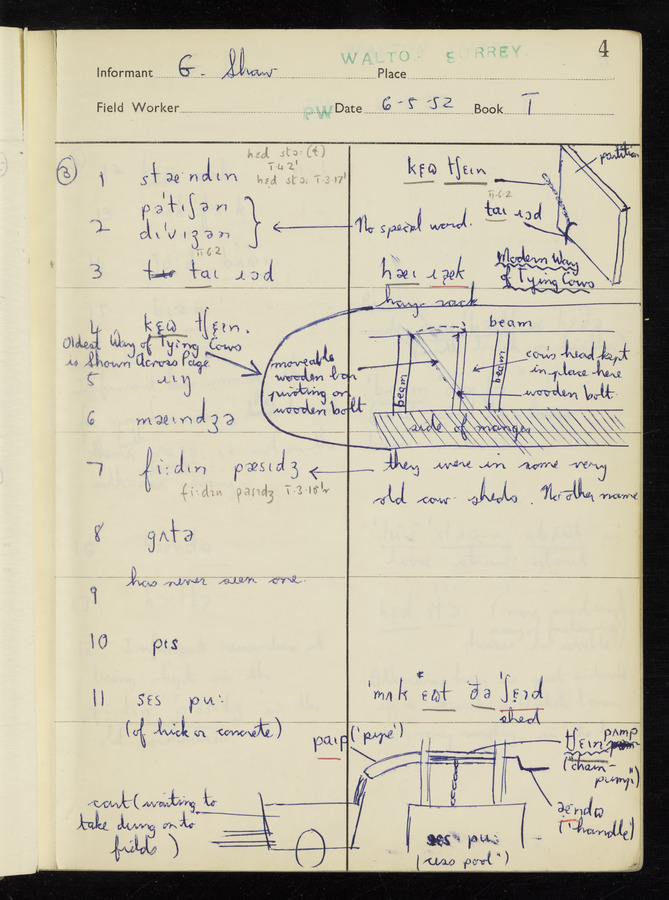 4
WALTO SURREY
Informant G. Shaw Place
Field Worker PW Date 6-5-52 Book I
③
hed stəː(t)
I.4.2'
hed stəː I.3.17'
1 stæˑndɪn
2 pəˈtɪʃən
dɪˈvɪʒən
No special word.
II 6.2
3 taɪ ɹɔd
kɛω tʃɛɪn
partition
II 6.2
taɪ ɹɔd
Modern Way
of Tying Cows
hæɪ ɹæk
hay-rack
4 kɛω tʃɛɪn.
Oldest Way of Tying Cows
is Shown across Page
5 ɹɪŋ
beam
moveable
wooden bar
pivoting on
wooden bolt
beam
beam
cow's head kept
in place here
wooden bolt
side of manger
6 mæɪndʒə
7 fiːdɪn pæsɪdʒ
fiːdɪn pasɪdʒ I.3.18'
they were in some very
old cow-sheds. No other name
8 gʌtə
9 has never seen one.
10 pɪs
11 sɛs puː
(of brick or concrete)
ˈmʌk ɛωt ðə ˈʃɛɪd
shed
paɪp ('pipe')
tʃɛɪn pʌmp
('chain-
pump')
ændω
('handle')
cart (waiting to
take dung on to
fields)
sɛs puː
(cess pool")